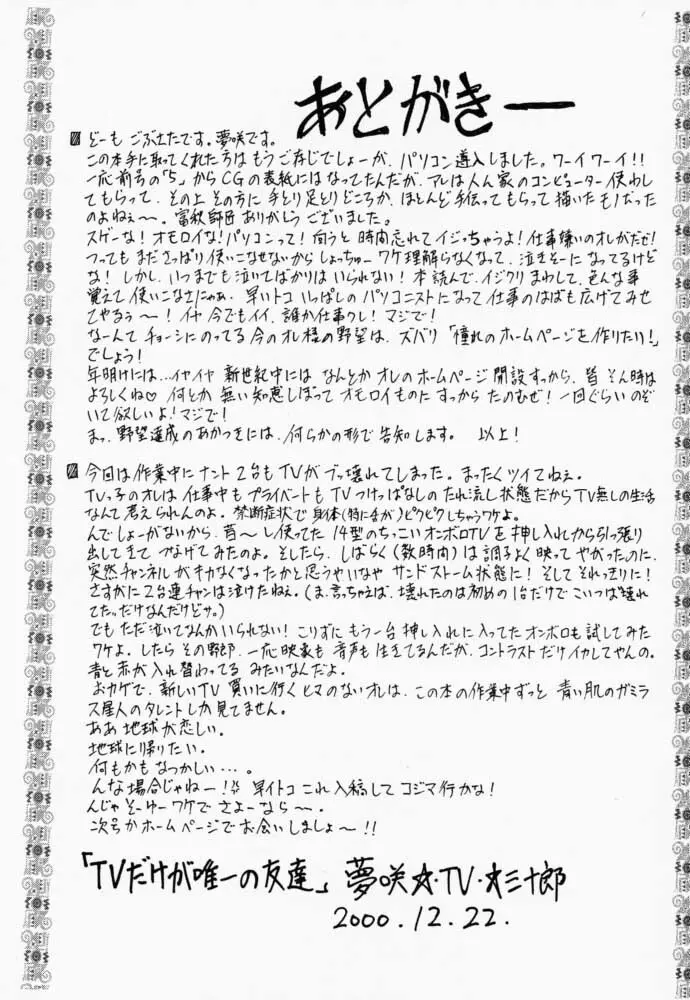 あとがきー
どーも ごぶさたです。夢咲です。
この本手に取ってくれた方は もうご存じでしょーが、パソコン導入しました。ワーイワーイ!!
一応前号の「5」からCGの表紙にはなってたんだが、アレは人ん家のコンピューター使わし
てもらって、その上その方に 手とり足とりどころか、ほとんど手伝ってもらって描いたモノだった
のよねぇ〜。富秋師匠ありがとうございました。
スゲーな!オモロイな!パソコンって!向うと時間忘れてイジっちゃうよ!仕事嫌いのオレがだぜ!
つってもまださっぱり使いこなせないからしょっちゅーワケ理解らなくなって、泣きそーになってるけど
な!しかし、いつまでも泣いてばかりはいられない!本読んで、イジクリまわして、色んな事
覚えて使いこなさにゃぁ、早いトコ いっぱしの パソコニストになって仕事のはばも広げてみせ
てやるぅ〜!イヤ 今でもイイ、誰か仕事クレ!マジで!
なーんて チョーシにのってる 今のオレ様の野望は、ズバリ「憧れのホームページを作りたい!」
でしょう!
年明けには…イヤイヤ 新世紀中には なんとか オレのホームページ開設すっから、皆 そん時は
よろしくね♡ 何とか 無い知恵しぼって オモロイものに すっから たのむぜ!一回ぐらい のぞ
いて欲しいよ!マジで!
まっ、野望達成のあかつきには、何らかの形で告知します。 以上!
今回は作業中にナント2台もTVがブッ壊れてしまった。まったくツイてねぇ。
TVっ子のオレは仕事中もプライベートもTVつけっぱなしのたれ流し状態だからTV無しの生活
なんて考えられんのよ。禁断症状で身体(特に舌が)ピクピクしちゃうワケよ。
んでしょーがないから、昔〜し使ってた14型のちっこいオンボロTVを押し入れから引っ張り
出してきて つなげてみたのよ。そしたら、しばらく(数時間)は調子よく映ってやがったのに、
突然チャンネルがキカなくなったかと思うやいなや サンドストーム状態に!そしてそれっきりに!
さすがに2台連チャンは泣けたねぇ。(ま、言っちゃえば、壊れたのは初めの1台だけでこいつは“壊れ
てた”だけなんだけどサ。)
でもただ泣いてなんかいられない!こりずにもう一台押し入れに入ってたオンボロも試してみた
ワケよ。したらその野郎、一応映像も音声も生きてるんだが、コントラストだけイカレてやんの。
青と赤が入れ替わってる みたいなんだよ。
おカゲで、新しいTV買いに行くヒマのないオレは、この本の作業中ずっと 青い肌のガミラ
ス星人のタレントしか見てません。
ああ 地球が恋しい。
地球に帰りたい。
何もかもなつかしい…。
んな場合じゃねー! 早イトコ これ入稿して コジマ行かな!
んじゃそーゆーワケで さよーなら〜。
次号かホームページでお会いしましょ〜!!
「TVだけが唯一の友達」 夢咲☆・TV・☆三十郎
2000.12.22.